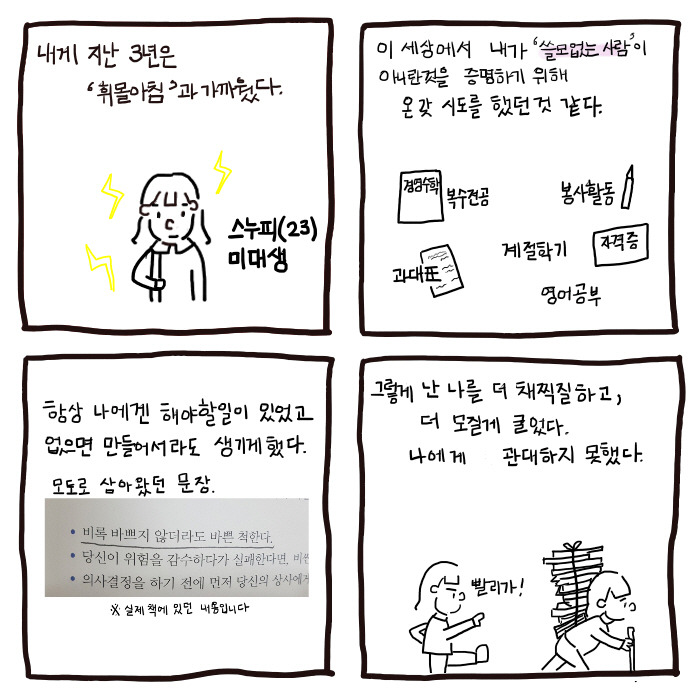 내게 지난 3년은
'휘몰아침'과 가까웠다.
스누피(23)
미대생
이 세상에서 내가 '쓸모없는 사람'이
아니란것을 증명하기 위해
온갖 시도를 했던것 같다.
경영수학
복수전공
봉사활동
과대표
계절학기
자격증
영어공부
항상 나에겐 해야할일이 있었고
없으면 만들어서라도 생기게했다.
모토로 삼아왔던 문장.
• 비록 바쁘지 않더라도 바쁜 척한다.
• 당신이 위험을 감수하다가 실패한다면, 비싼
• 의사결정을 하기 전에 먼저 당신의 상사에게
※ 실제 책에 있던 내용입니다
그렇게 난 나를 더 채찍질하고,
더 모질게 굴었다.
나에게 관대하지 못했다.
빨리가!